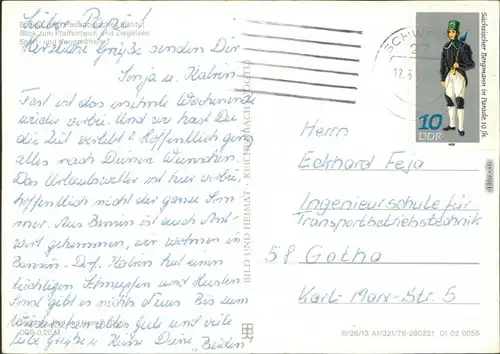 Lieber
Pädagogisches Institut
Blick zum Pfaffenteich und Ziegelsee
Herzliche Grüße senden Dir
Sport- und Kongreßhalle
Sonja u. Katrin
Fast ist das ersehnte Wochenende
wieder vorbei. Und wie hast Du
die Zeit verlebt? Hoffentlich ganz
alles nach Deinen Wünschen.
Das Urlaubswetter ist hier vorbei,
hoffentlich nicht der ganze Som-
mer. Aus Bansin ist auch Ant-
wort gekommen, wir wohnen in
Bansin-Dorf. Katrin hat einen
tüchtigen Schnupfen und Husten.
Sonst gibt es nichts Neues. Bis zum
Wiedersehen alles Gute und viele
liebe Grüße u. Küsse Deine "Beiden"
BILD UND HEIMAT REICHENBACH
SCHWERIN
27
12.
Sächsischer Bergmann in Parade 19. Jh.
10
DDR
1978
Herrn
Eckhard Feja
Ingenieurschule für
Transportbetriebstechnik
58 Gotha
Karl-Marx-Str. 5
III/26/13 A1/321/78-280321 01 02 0055